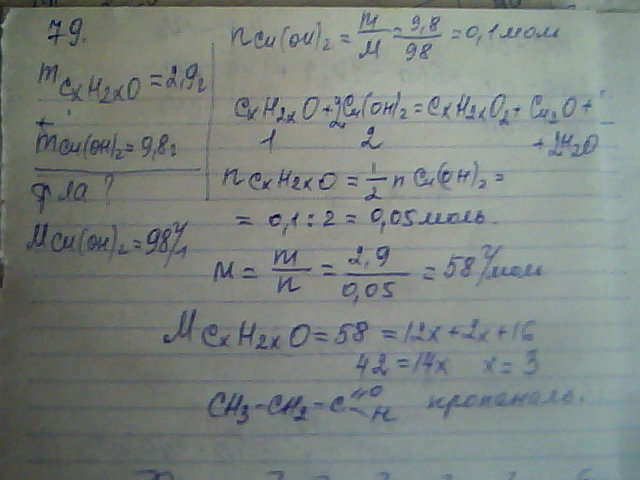 79.
mCxH2xO = 2,9г
+
mCu(OH)2 = 9,8г
ф-ла ?
MCu(OH)2 = 98г/
nCu(OH)2 = m/M = 9,8/98 = 0,1 моль
CxH2xO + 2Cu(OH)2 = CxH2xO2 + Cu2O +
1 2 + 2H2O
nCxH2xO = 1/2 n Cu(OH)2 =
= 0,1 : 2 = 0,05 моль.
M = m/n = 2,9/0,05 = 58 г/моль
MCxH2xO = 58 = 12x + 2x + 16
42 = 14x x = 3
CH3-CH2-C=O-H пропаналь.